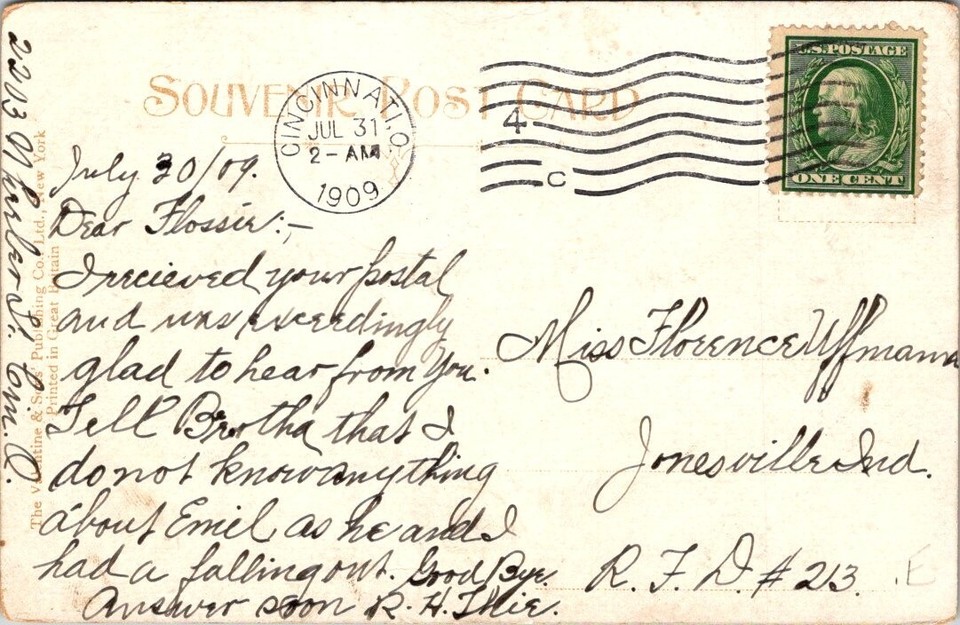 SOUVENIR POST CARD
CINCINNATI, O.
JUL 31
2-AM
1909
4
C
U.S. POSTAGE
ONE CENT
July 30/09.
Dear Flossie:-
I recieved your postal
and was exceedingly
glad to hear from you.
Tell Bertha that I
do not know anything
about Emil as he and I
had a falling out. Good Bye.
Answer soon R. H.
Miss Florence Uffmann
Jonesville Ind.
R. F. D. # 23.
E
2203 St. Cin. O.
The Valentine & Sons' Publishing Co. Ltd., New York
Printed in Great Britain